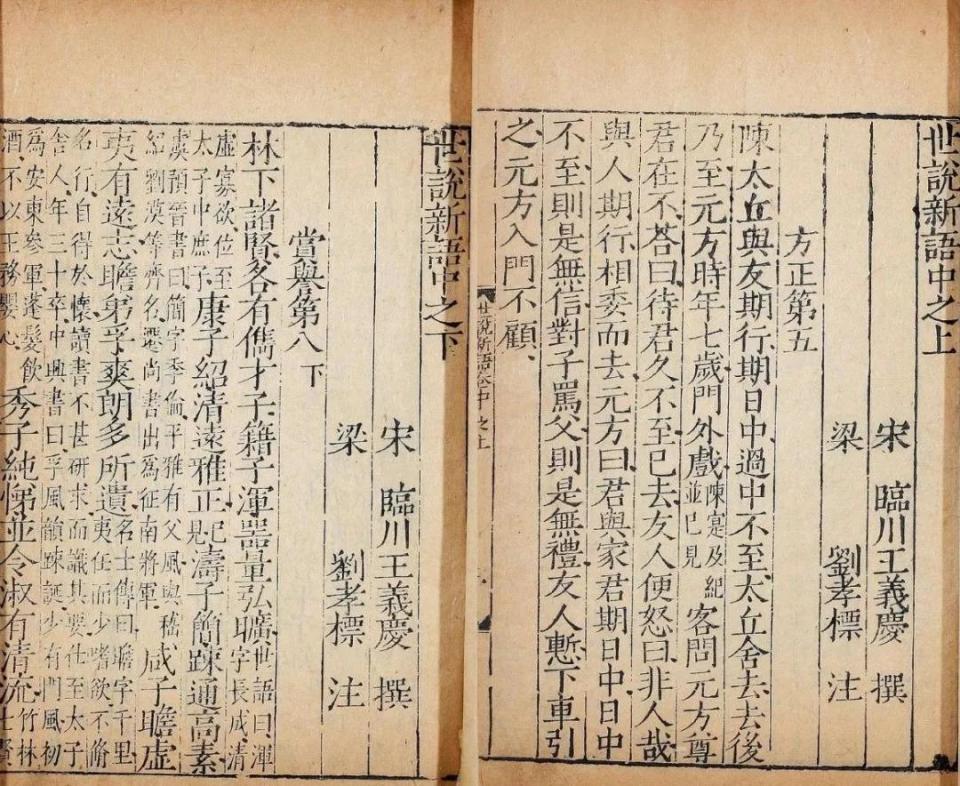 世說新語中之上
宋 臨川王義慶 撰
梁 劉孝標 注
方正第五
陳太丘與友期行期日中過中不至太丘舍去去後
乃至元方時年七歲門外戲陳寔及紀並已見客問元方尊
君在不荅曰待君久不至已去友人便怒曰非人哉
與人期行相委而去元方曰君與家君期日中日中
不至則是無信對子罵父則是無禮友人慙下車引
之元方入門不顧
世說新語卷中之上
世說新語中之下
宋 臨川王義慶 撰
梁 劉孝標 注
賞譽第八下
林下諸賢各有儁才子籍子渾器量弘曠世語曰渾字長成清
虛寡欲位至太子中庶子康子紹清遠雅正已見濤子簡疎通高素
虞預晉書曰簡字季倫平雅有父風與嵇紹劉漠等齊名遷尚書出為征南將軍咸子瞻虛
夷有遠志瞻弟孚爽朗多所遺名士傳曰瞻字千里夷任而少嗜欲不脩
名行自得於懷讀書不甚研求而識其要仕至太子舍人年三十卒中興書曰孚風韻疎誕少有門風初
為安東參軍蓬髮飲酒不以王務嬰心秀子純悌並令淑有清流竹林七賢